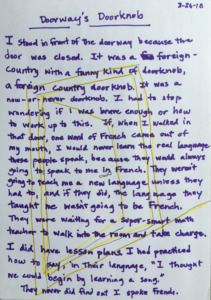 Doorway's Doorknob
3-26-18
I stood in front of the doorway because the
door was closed. It was a foreign-
country with a funny kind of doorknob,
a foreign country doorknob. It was a
now-or-never doorknob. I had to stop
wondering if I was brave enough or how
to work up to this. If, when I walked in
that door, one word of French came out of
my mouth, I would never learn the real language
these people speak, because they would always
going to speak to me in French. They weren't
going to teach me a new language unless they
had to, and if they did, the language they
taught me wasn't going to be French.
They were waiting for a super-smart math
teacher to walk into the room and take charge.
I did have lesson plans. I had practiced
how to say, in their language, "I thought
we could begin by learning a song."
They never did find out I spoke French.